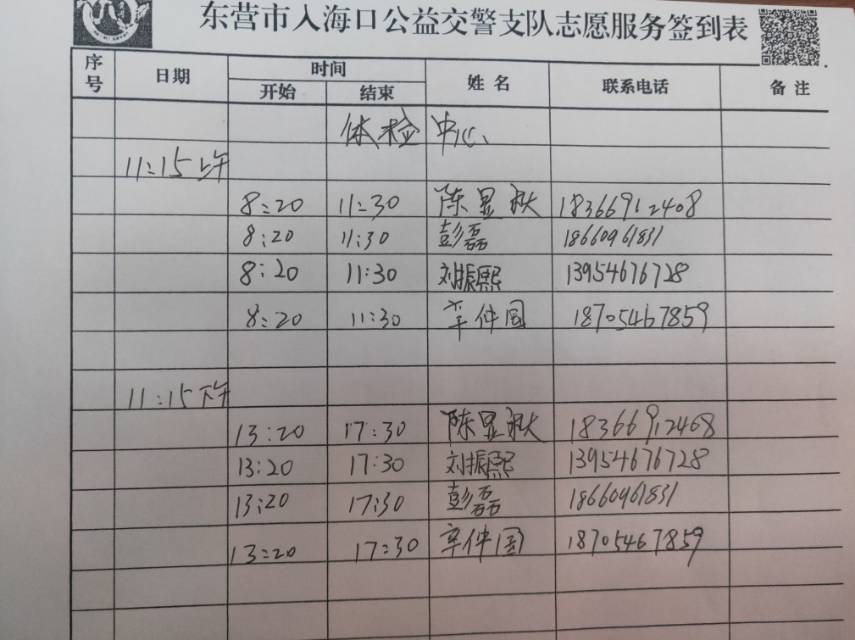 东营市入海口公益交警支队志愿服务签到表
序号 日期 时间 姓名 联系电话 备注
开始 结束
体检中心
11:15上午
8:20 11:30 陈显秋 18366912408
8:20 11:30 彭磊 18660961831
8:20 11:30 刘振熙 13954676728
8:20 11:30 辛仲国 18705467859
11:15下午
13:20 17:30 陈显秋 18366912408
13:20 17:30 刘振熙 13954676728
13:20 17:30 彭磊 18660961831
13:20 17:30 辛仲国 18705467859